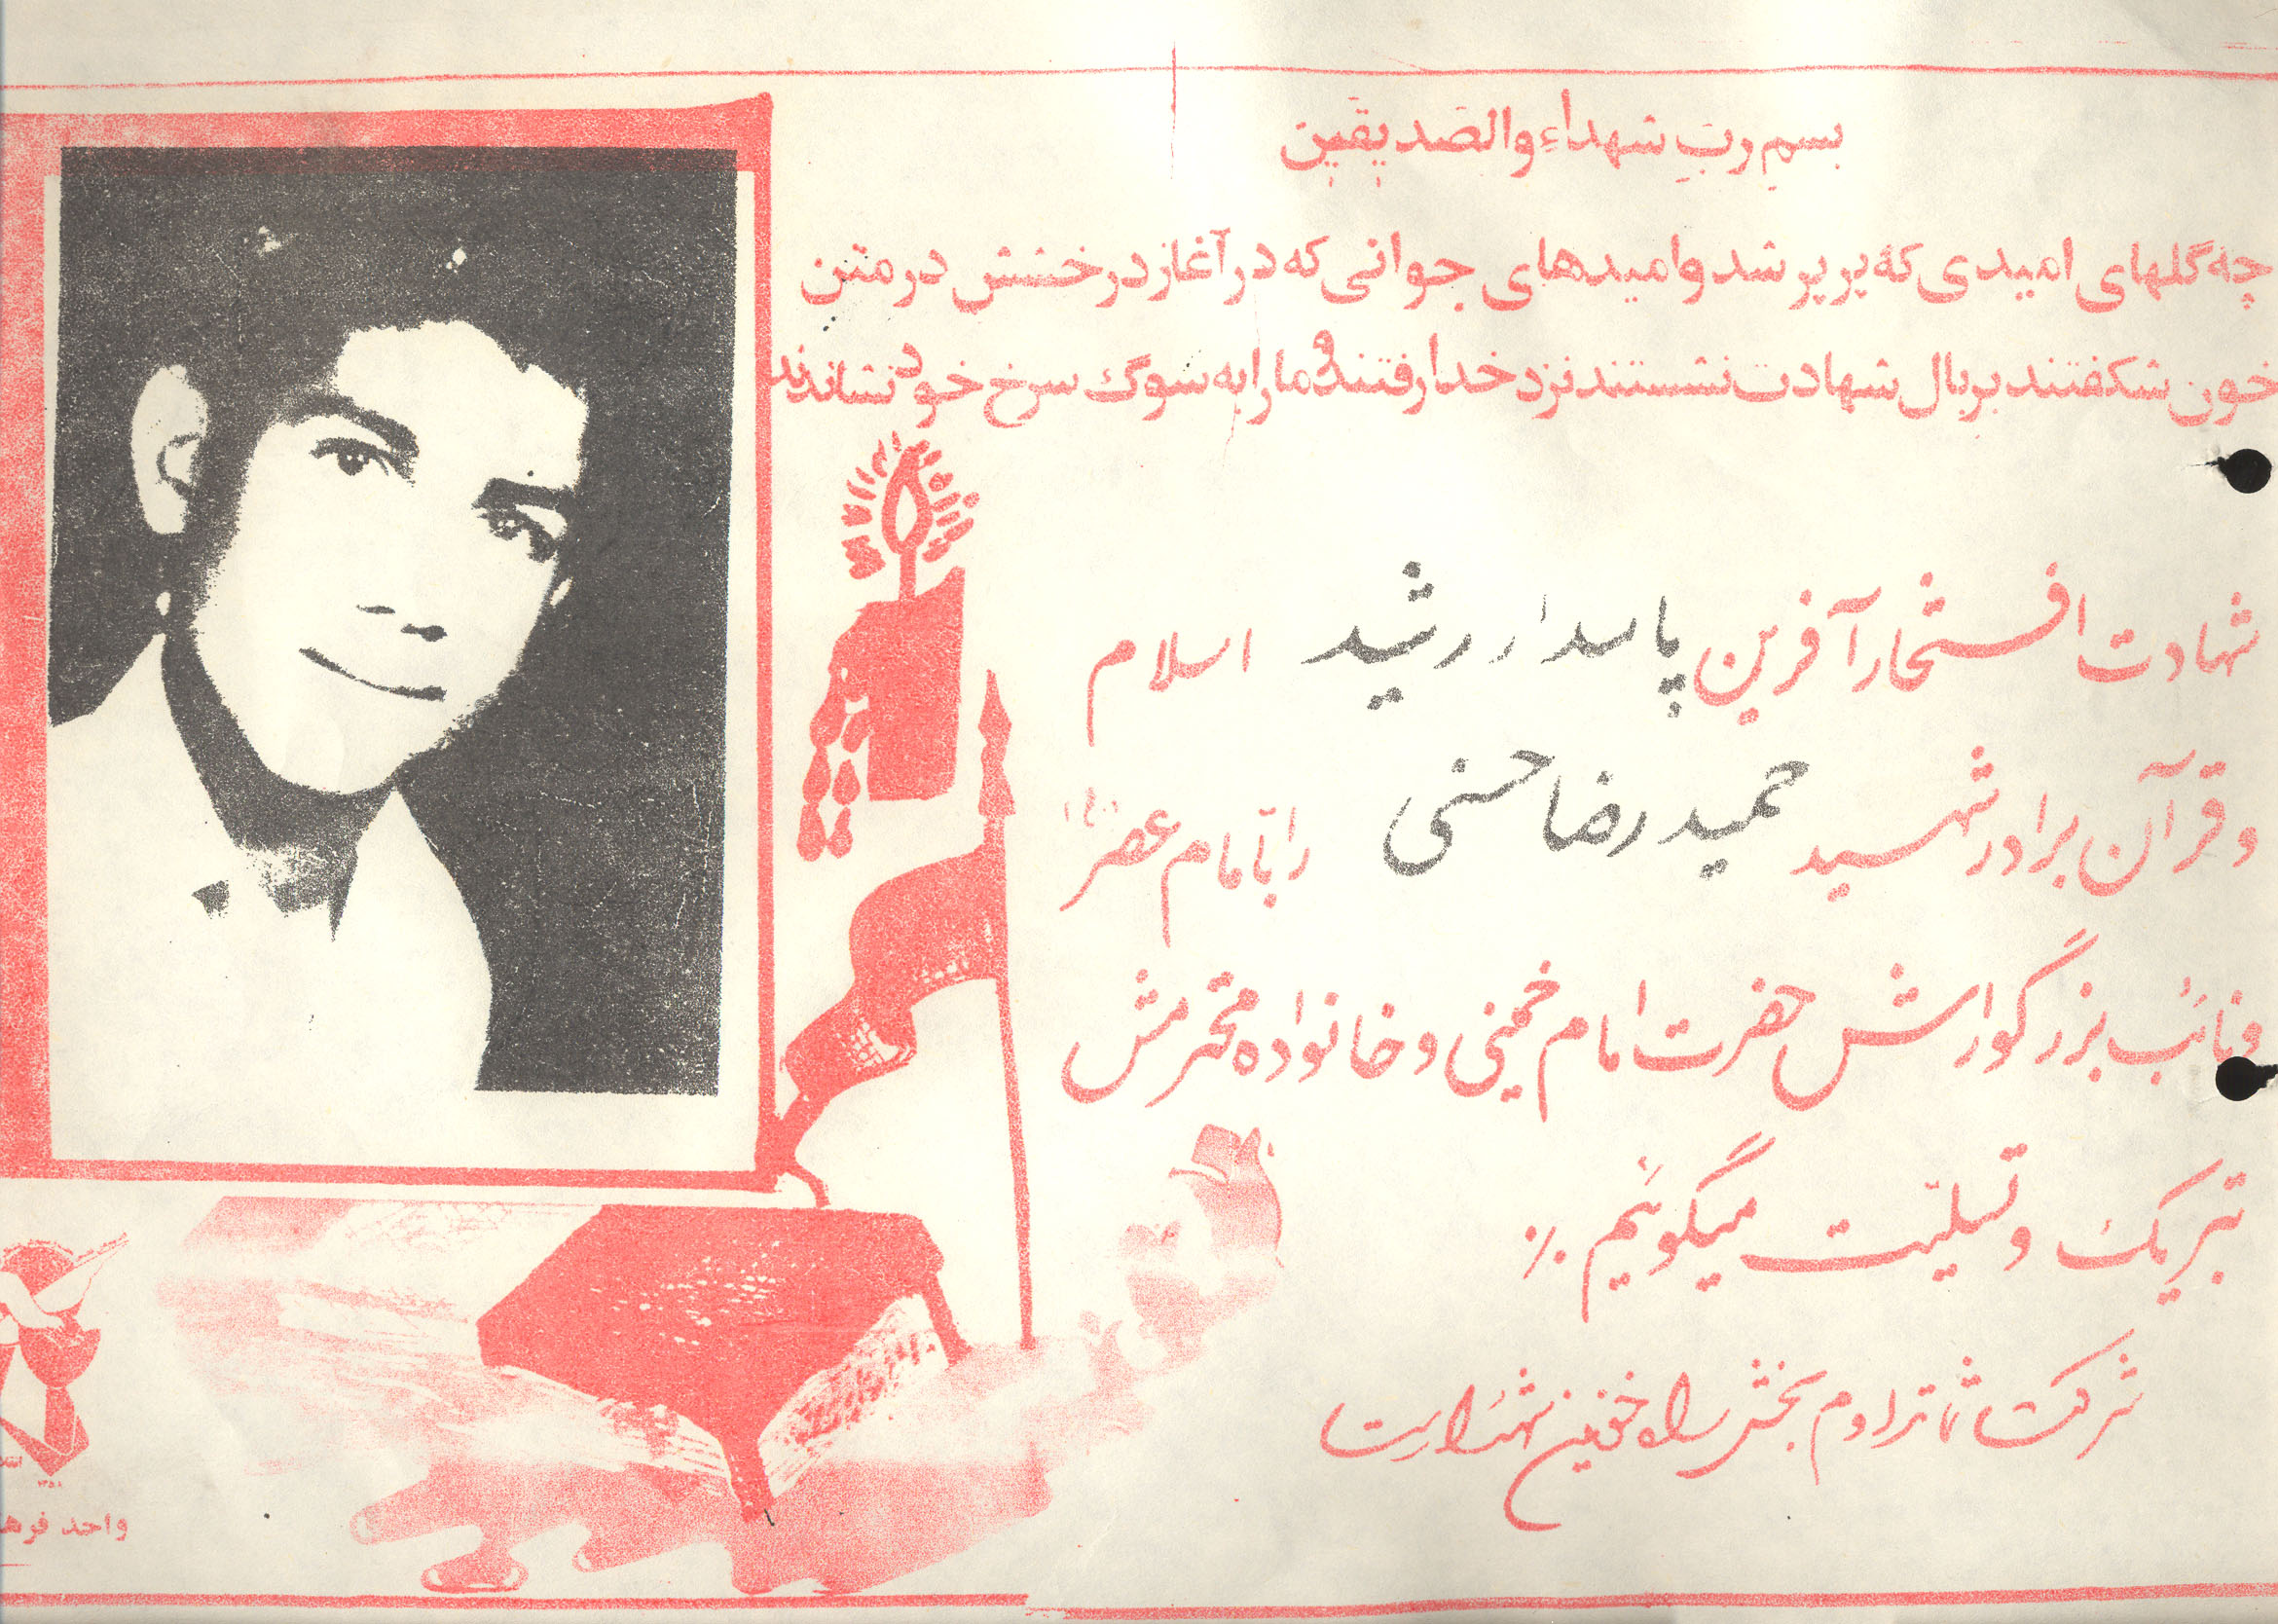 بسمِ ربِ شهداءِ والصَدیقَینَ
چه گلهای امیدی که پرپر شد و امیدهای جوانی که در آغاز درخشش در متن
خون شکفتند بر بال شهادت نشستند نزد خدا رفتند و ما را به سوگ سرخ خود نشاندند
شهادت افتخار آفرین پاسدار رشید اسلام
و قرآن برادر شهید حمید رضا حسنی را بامام عصر (عج)
و نائب بزرگوارش حضرت امام خمینی و خانواده محترمش
تبریک و تسلیت میگوئیم ٪
شرکت شما تداوم بخش راه خونین شهداست
۱۳۵۸
واحد